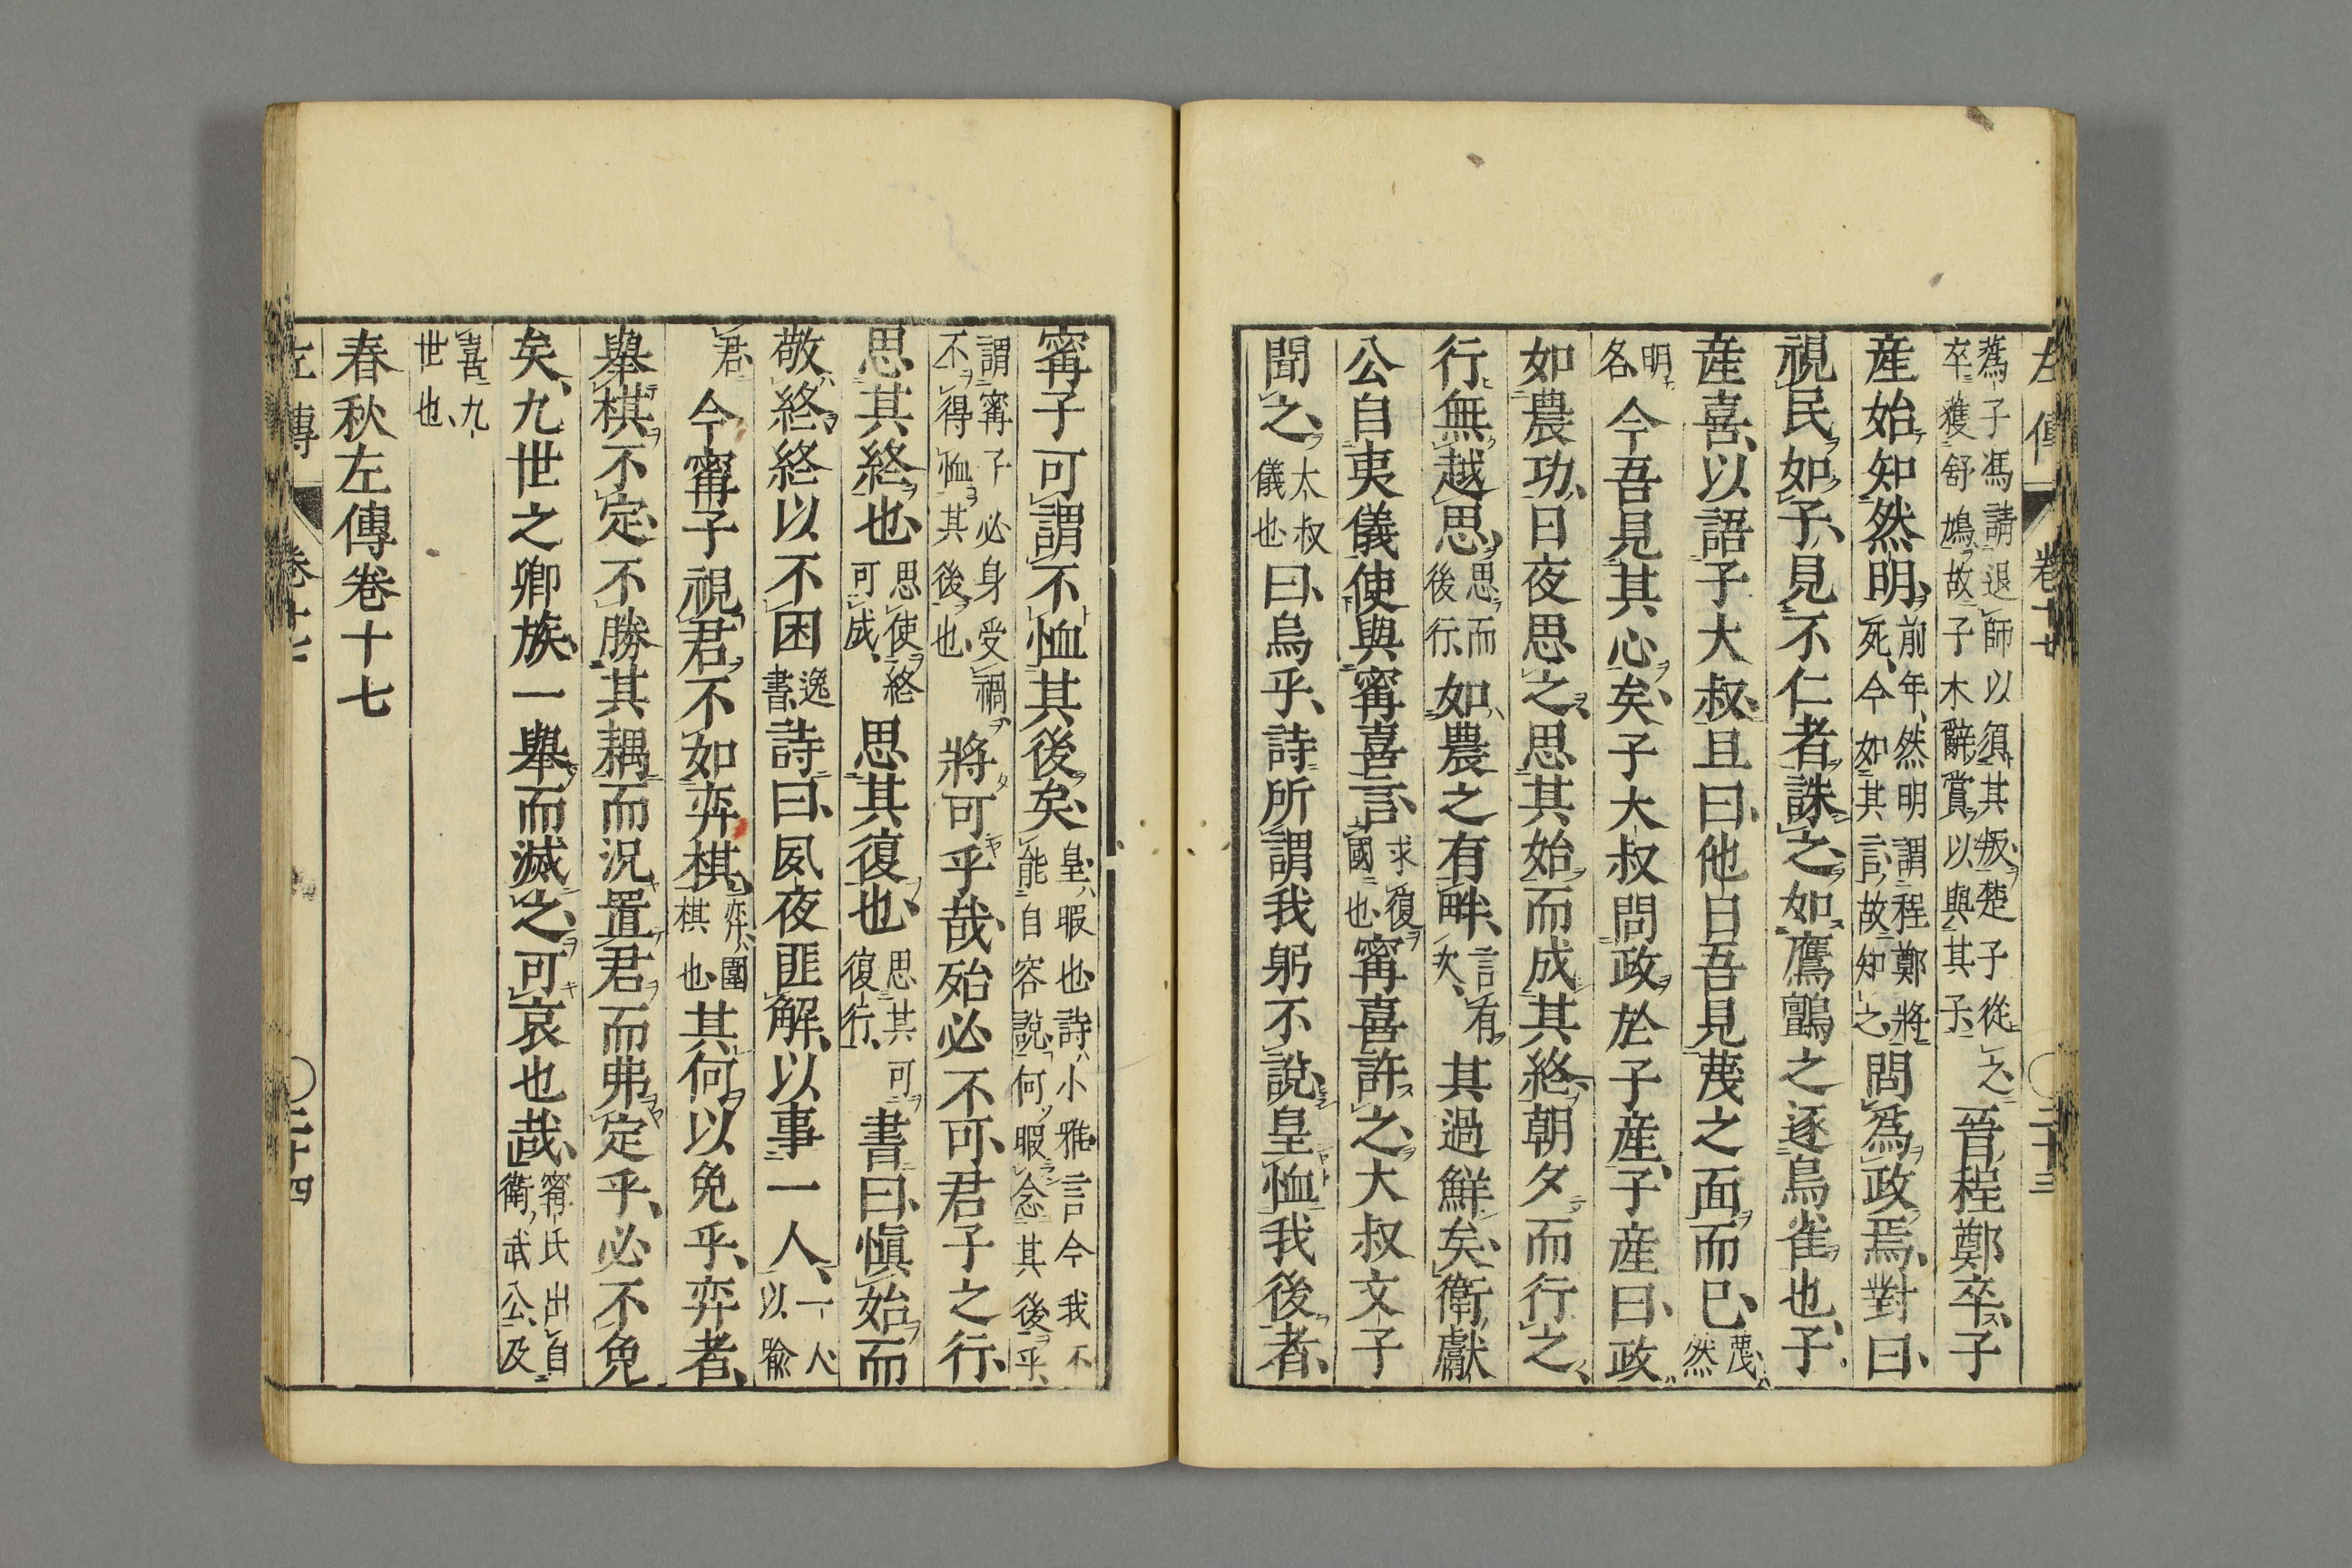 左傳 卷十七 二十三
蔿子馮請退師以須其叛楚子從之卒獲舒鳩故子木辭賞以與其子晉程鄭卒子
産始知然明前年然明謂程鄭將死今如其言故知之問爲政焉對曰
視民如子見不仁者誅之如鷹鸇之逐鳥雀也子
産喜以語子大叔且曰他日吾見蔑之面而已蔑然
明各今吾見其心矣子大叔問政於子産子産曰政
如農功日夜思之思其始而成其終朝夕而行之
行無越思思而後行如農之有畔言有次其過鮮矣衛獻
公自夷儀使與甯喜言求復國也甯喜許之大叔文子
聞之太叔儀也曰烏乎詩所謂我躬不說皇恤我後者
甯子可謂不恤其後矣皇暇也詩小雅言今我不能自容說何暇念其後乎
謂甯子必身受禍不得恤其後也將可乎哉殆必不可君子之行
思其終也思使終可成思其復也思其可復行書曰愼始而
敬終終以不困逸書詩曰夙夜匪解以事一人一人以喩
君今甯子視君不如弈棋弈圍棋也其何以免乎弈者
舉棋不定不勝其耦而況置君而弗定乎必不免
矣九世之卿族一舉而滅之可哀也哉甯氏出自衛武公及
喜九世也
春秋左傳卷十七
左傳 卷十七 二十四